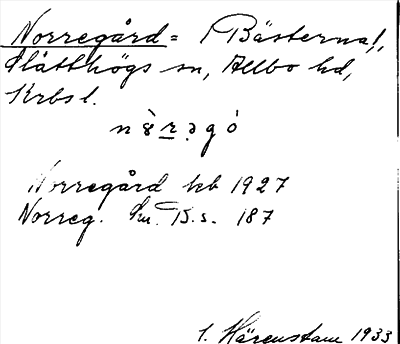 Norregård = (Bästerna),
Slätthögs sn, Allbo hd,
Krbs l.
nò̤rə̣gó
Norregård kb 1927
Norreg. Sm. B. s. 187
S. Härenstam 1933